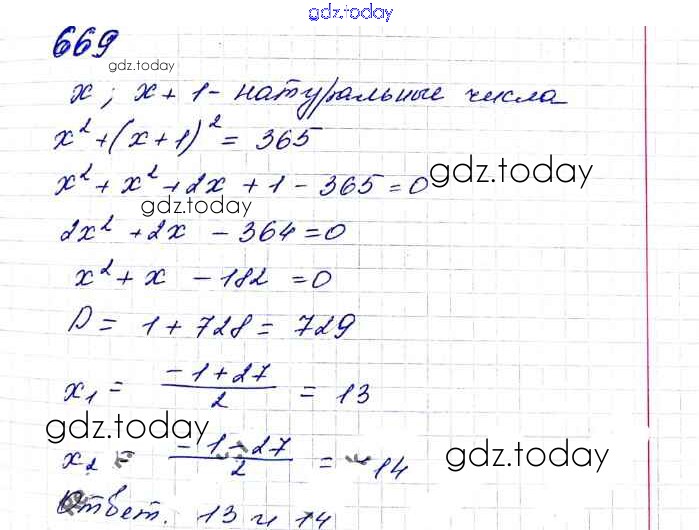 gdz.today
669
gdz.today
x; x + 1 - натуральные числа
x² + (x + 1)² = 365
x² + x² + 2x + 1 - 365 = 0
gdz.today
gdz.today
2x² + 2x - 364 = 0
x² + x - 182 = 0
D = 1 + 728 = 729
x₁ = (-1 + 27)/2 = 13
gdz.today
gdz.today
x₂ = (-1 - 27)/2 = -14
Ответ. 13 и 14